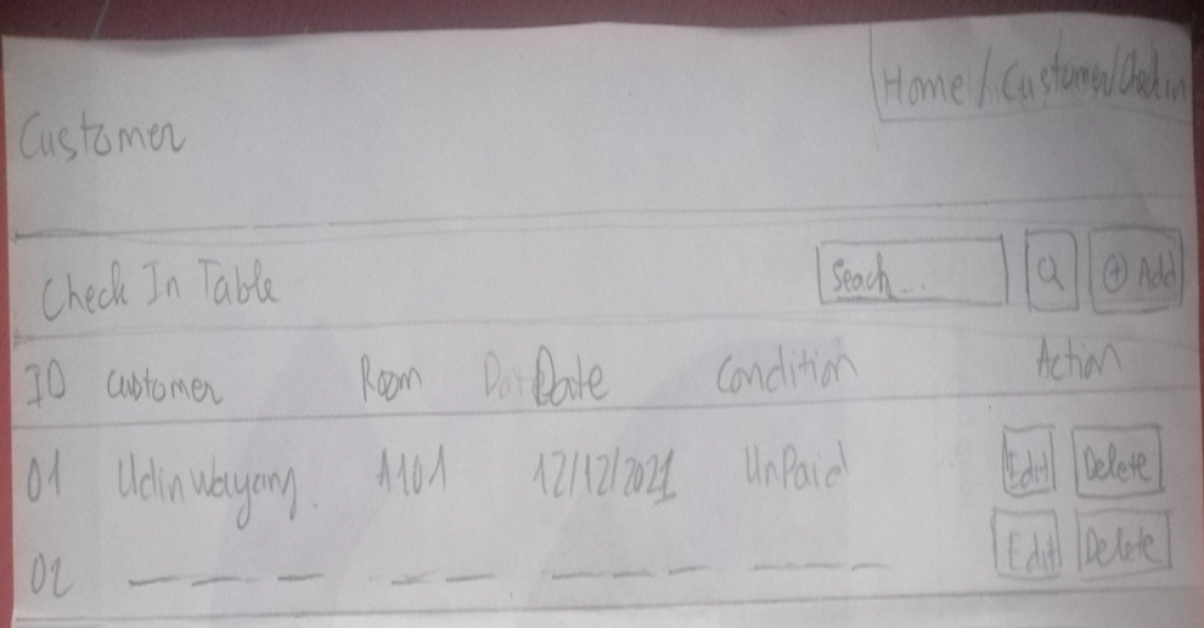 Home / Customer/Check in
Customer
Check In Table
Seach... Add
ID Customer Room Date Condition Action
01 Udin Wayang. A101 12/12/2021 UnPaid Edit Delete
02 Edit Delete